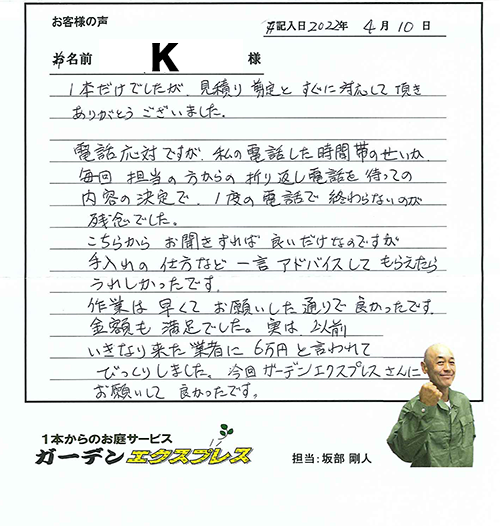 お客様の声
ご記入日2022年 4月10日
お名前 K 様
1本だけでしたが、見積り 剪定と すぐに対応して頂き
ありがとう ございました.
電話応対ですが、私の電話した時間帯のせいか、
毎回 担当の方からの 折り返し電話を 待っての
内容の決定で、1度の電話で 終わらないのが
残念でした。
こちらから お聞きすれば 良いだけなのですが
手入れの 仕方など 一言 アドバイスして もらえたら
うれしかったです.
作業は 早くて お願いした通りで 良かったです.
金額も 満足でした。実は 以前
いきなり来た業者に 6万円と言われて
びっくりしました。今回 ガーデンエクスプレスさんに
お願いして 良かったです。
1本からのお庭サービス
ガーデンエクスプレス
担当:坂部 剛人